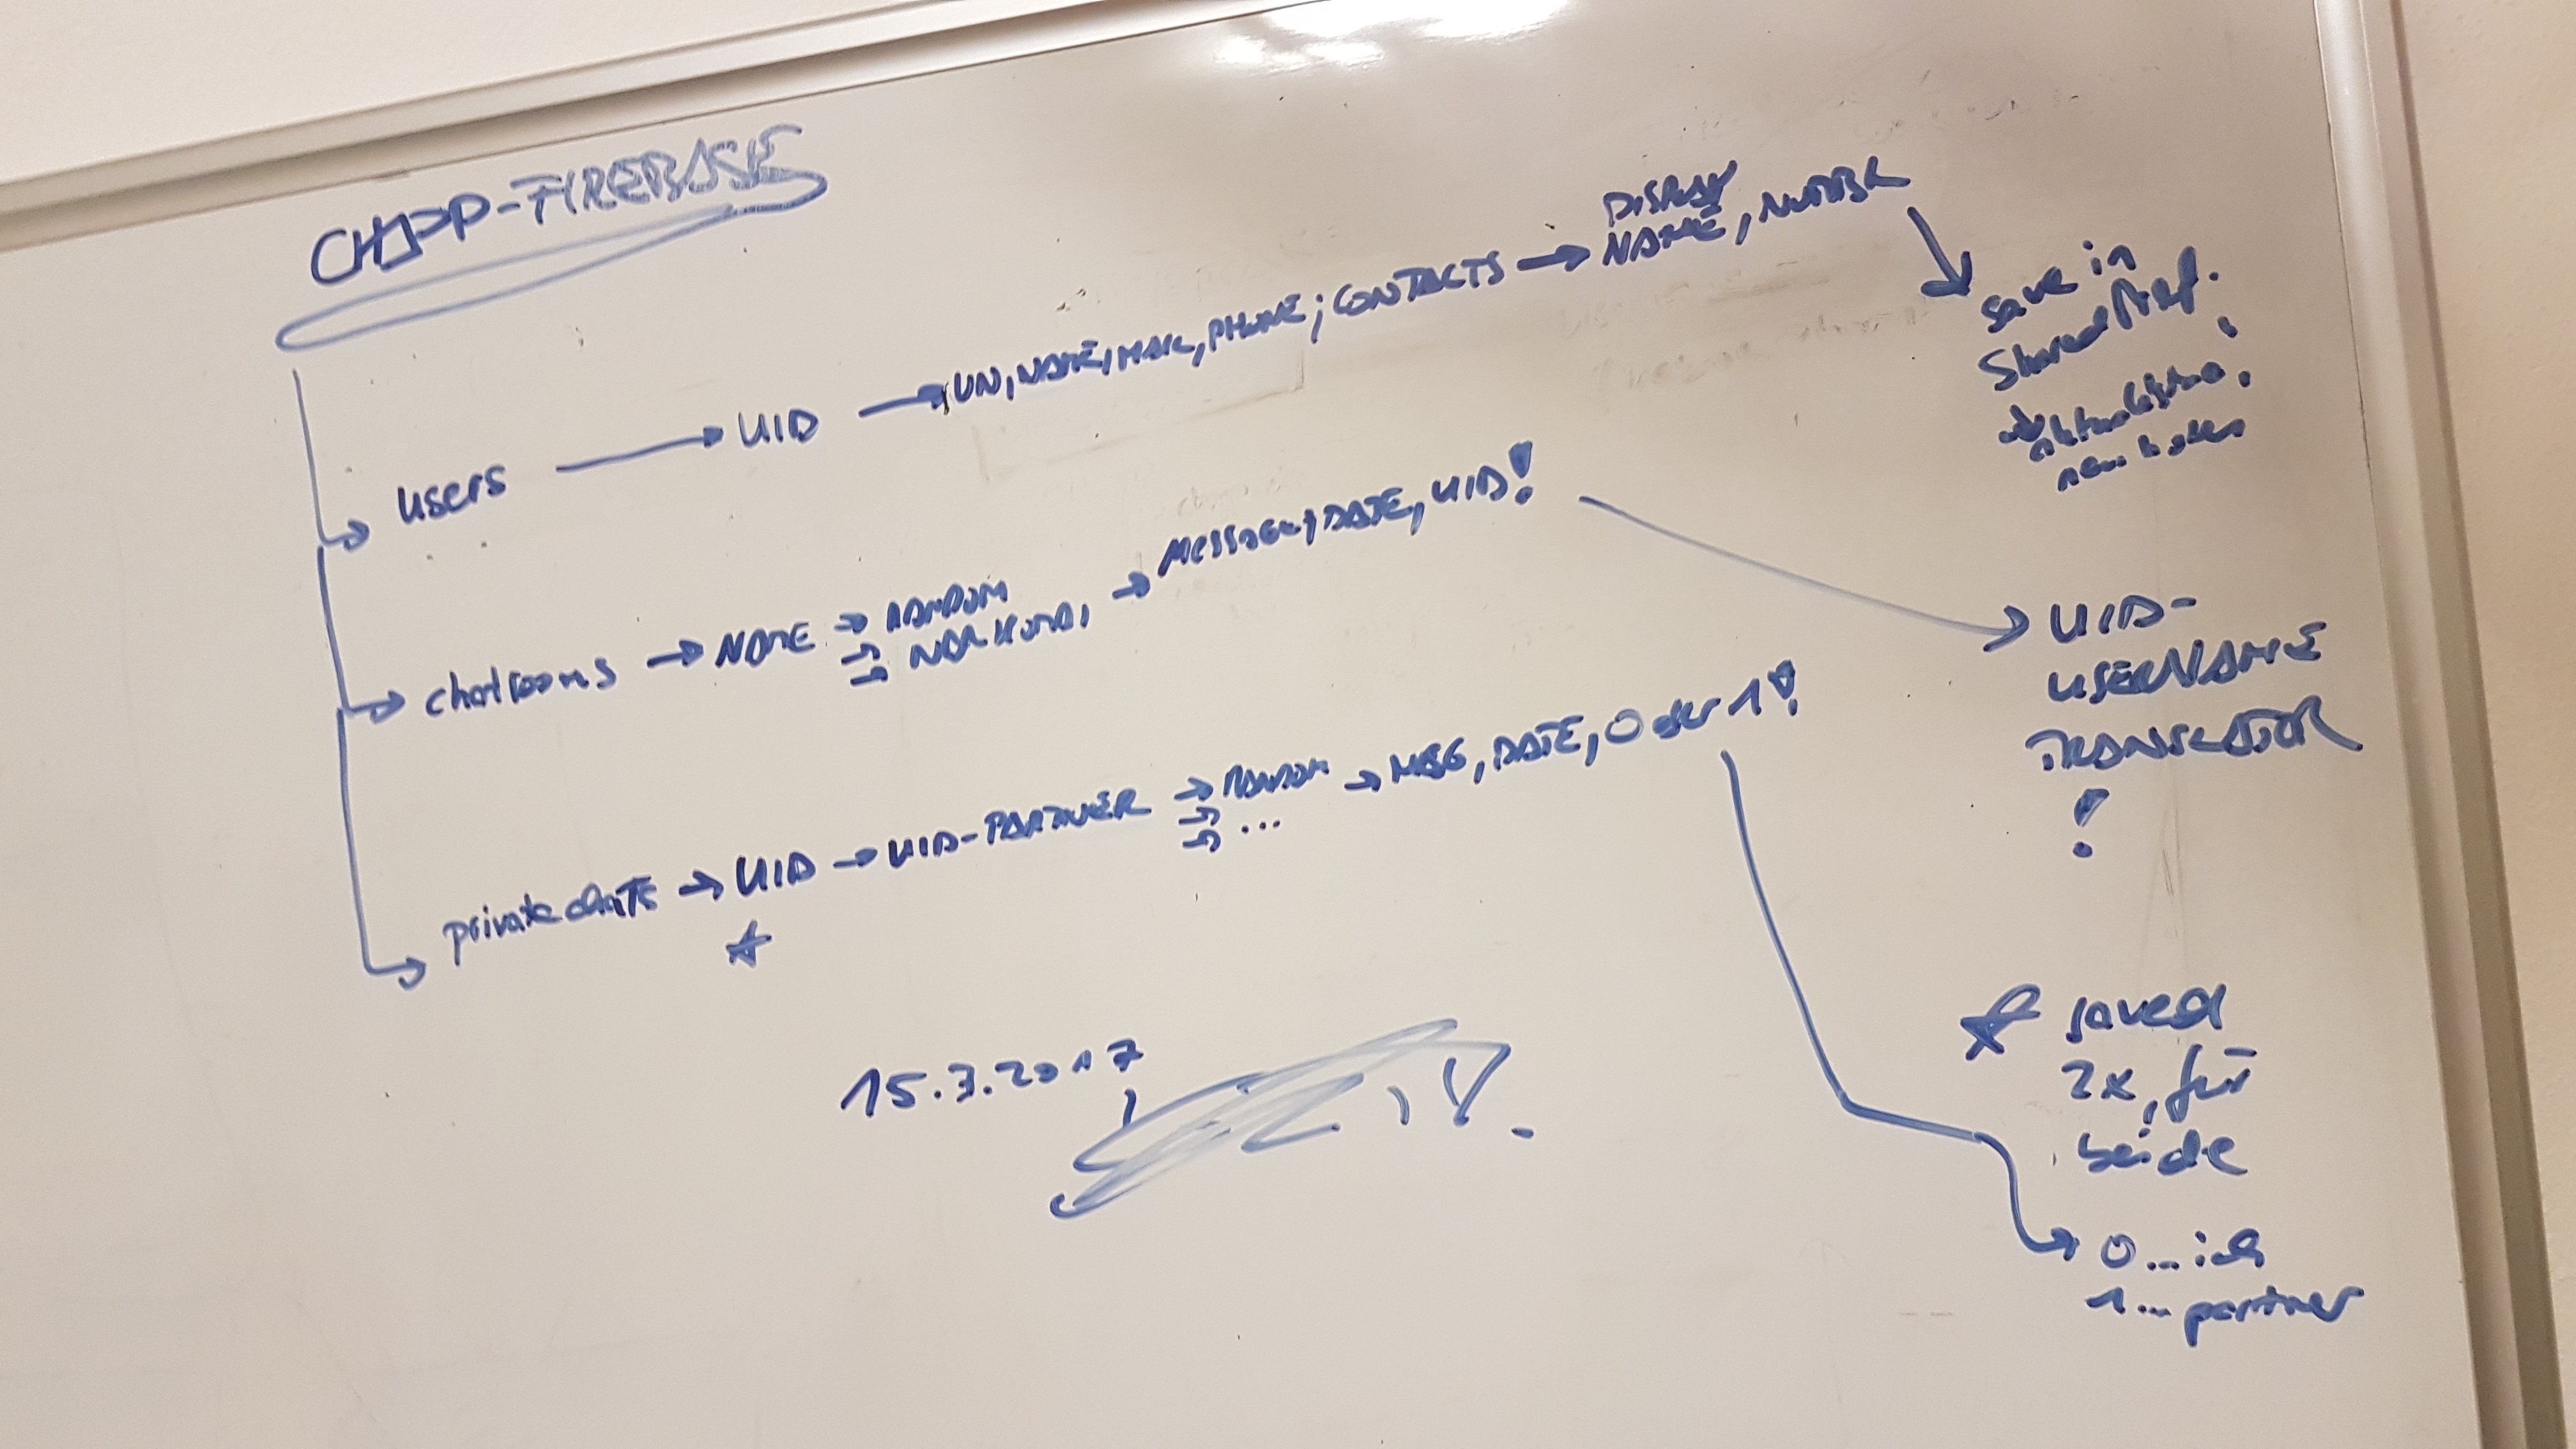 CHAPP-FIREBASE
users → UID → UN, NAME, MAIL, PHONE; CONTACTS → DISPLAY NAME, NUMBER
save in
Shared Pref.
new
chatrooms → NAME → RANDOM → MESSAGE, DATE, UID!
UID-
USERNAME
TRANSLATOR
!
privatechats → UID → UID-PARTNER → RANDOM → MSG, DATE, 0 oder 1!
...
15.3.2017
saved
2x, für
beide
0...ich
1...partner